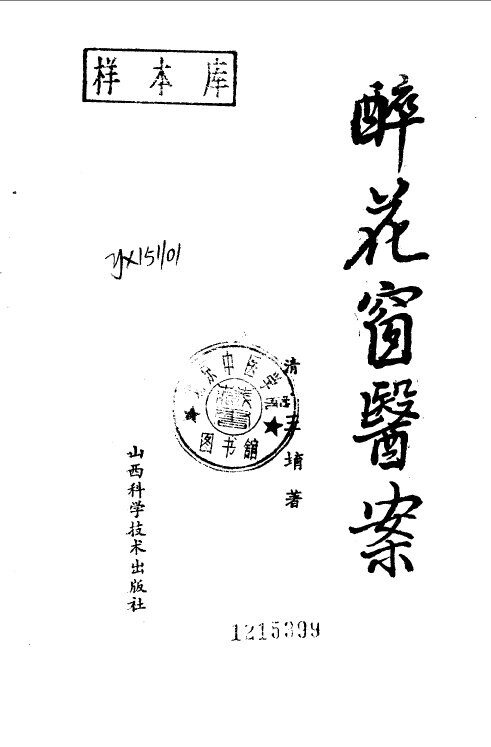 样本库
醉花窗醫案
yx151/01
清 王堉 著
中医学院
图书館
山西科学技术出版社
1215399